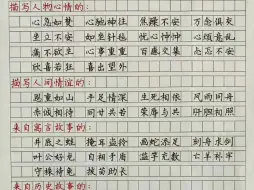 描写人物心情的:
心急如焚 心驰神往 焦躁不安 万念俱灰
坐立不安 如坐针毡 忧心忡忡 心烦意乱
痛不欲生 心事重重 百感交集 忐忑不安
欣喜若狂 喜出望外
描写人间情谊的:
恩重如山 手足情深 生死相依 风雨同舟
赤诚相待 同甘共苦 荣辱与共 肝胆相照
来自寓言故事的:
井底之蛙 掩耳盗铃 画蛇添足 刻舟求剑
叶公好龙 自相矛盾 滥竽充数 亡羊补牢
守株待兔 拔苗助长
来自历史故事的: